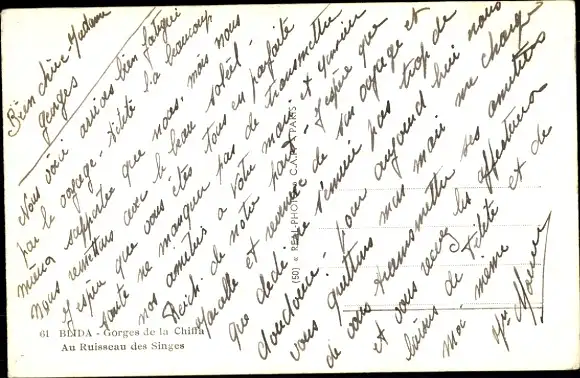 Bien chère Madame
Georges
Nous voici arrivés bien fatigués
par le voyage - Titite l'a beaucoup
mieux supportée que nous, mais nous
nous remettons avec le beau soleil -
J'espère que vous êtes tous en parfaite
santé ne manquez pas de transmettre
nos amitiés à votre mari et Monsieur
Reich. de notre part - J'espère que
que Dédé est revenue de son voyage et
doudour - pour aujourd'hui nous
vous quittons mon mari me charge
de vous transmettre ses amitiés
et vous recevez les affectueux
baisers de Titite et de
moi même
(50) « REAL-PHOTO » C.A.P. - PARIS
61 BLIDA - Gorges de la Chiffa
Au Ruisseau des Singes